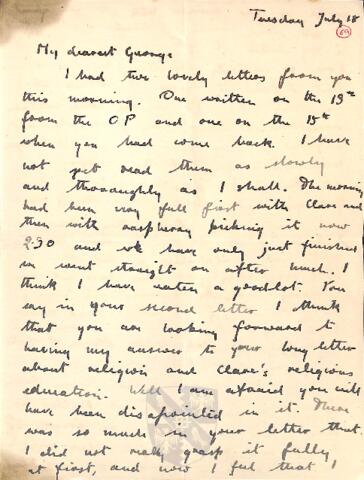 Tuesday July 18
69
My dearest George
I had two lovely letters from you
this morning. One written on the 13th
from the OP and one on the 15th
when you had come back. I have
not yet read them as slowly
and thoroughly as I shall. The morning
had been very full first with Clare and
then with raspberry picking it now
2.30 and we have only just finished
so went straight on after lunch. I
think I have eaten a good lot. You
say in your second letter I think
that you are looking forward to
having my answer to your long letter
about religion and Clare's religious
education. Well I am afraid you will
have been disapointed in it. There
was so much in your letter that
I did not really grasp it fully
at first, and now I feel that I